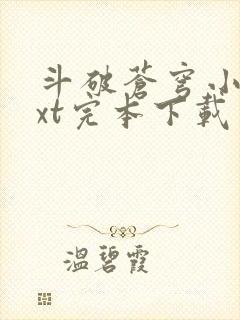 斗破苍穹小
xt完本下载
温碧霞